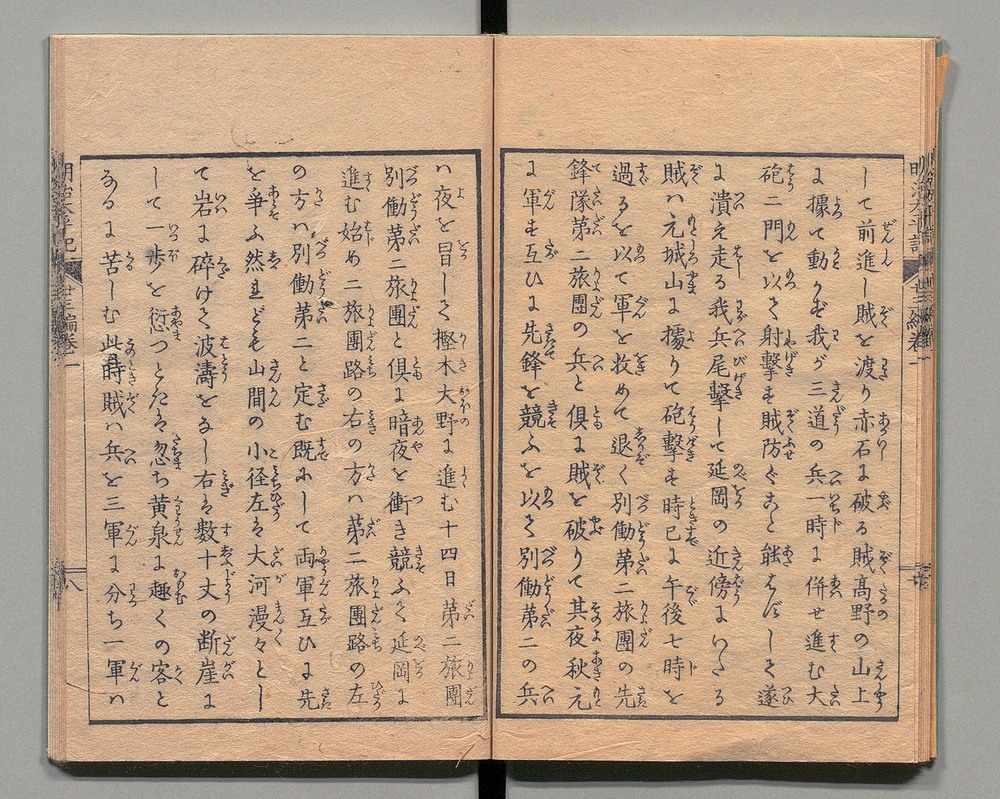 して前進し賊を渡り赤石に破る賊高野の山上
に據て動かず我が三道の兵一時に併せ進む大
砲二門を以て射撃す賊防ぐこと能はずして遂
に潰え走る我兵尾擊して延岡の近傍にいたる
賊ハ元城山に據りて砲擊す時已に午後七時を
過るを以て軍を收めて退く別働第二旅團の先
鋒隊第二旅團の兵と俱に賊を破りて其夜秋元
に軍す互ひに先鋒を競ふを以て別働第二の兵
ハ夜を冒して樫木大野に進む十四日第二旅團
別働第二旅團と俱に暗夜を衝き競ふて延岡に
進む始め二旅團路の右の方ハ第二旅團路の左
の方ハ別働第二と定む既にして両軍互ひに先
を爭ふ然れども山間の小径左は大河漫々とし
て岩に碎けて波濤をなし右は数十丈の断崖に
して一歩を愆つときは忽ち黄泉に趣くの客と
なるに苦しむ此時賊ハ兵を三軍に分ち一軍ハ
明治太平記
廿三編卷一
八